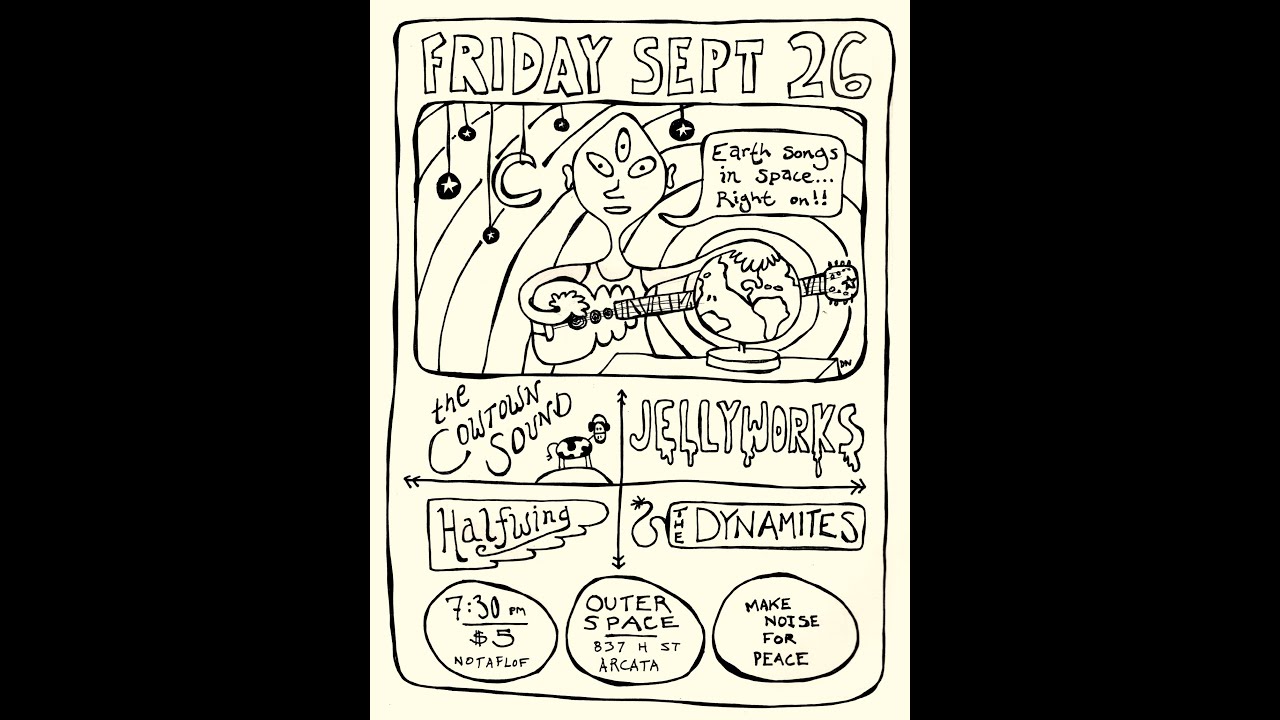 FRIDAY SEPT 26
Earth songs
in space...
Right on!!
DN
the
COWTOWN
SOUND
JELLYWORKS
Halfwing
THE
DYNAMITES
7:30 PM
$5
NOTAFLOF
OUTER
SPACE
837 H ST
ARCATA
MAKE
NOISE
FOR
PEACE